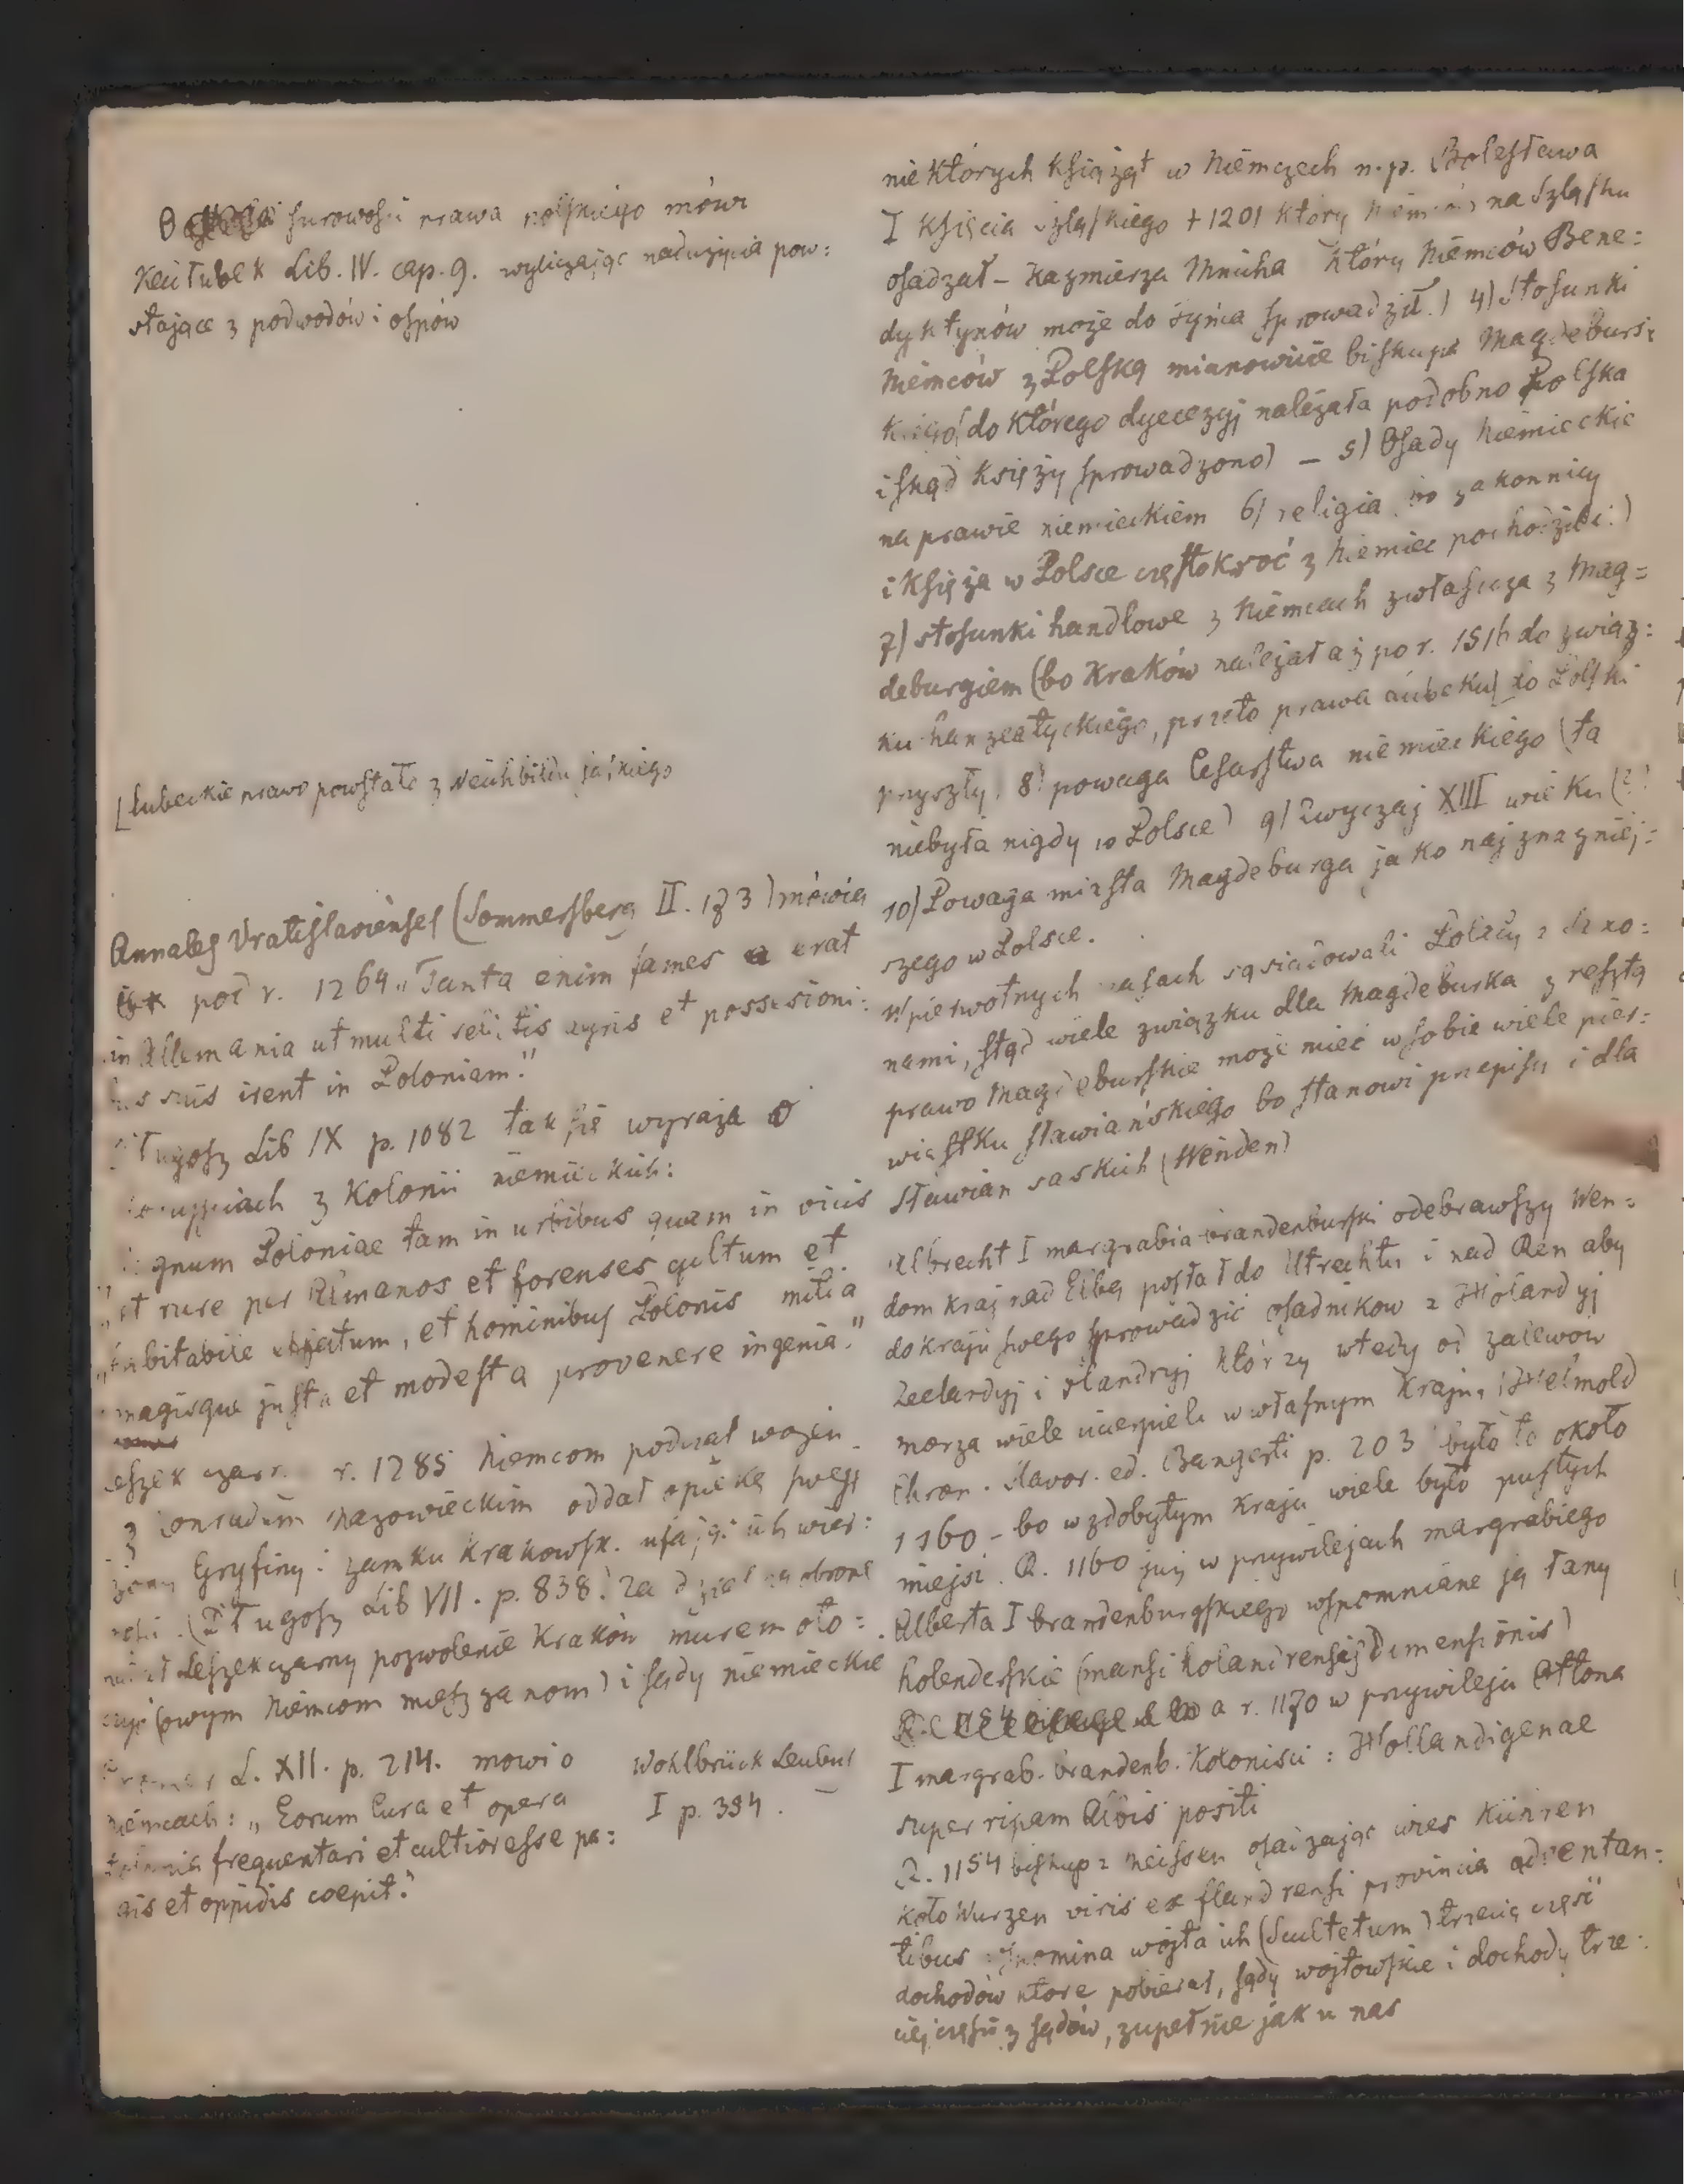 O surowości prawa polskiego mówi
Kadłubek Lib. IV. cap. 9. wyliczając nadużycia pow:
stające z podwodów i ospów
[Lubeckie prawo powstało z
Annales Vratislavienses (Sommersberg II. 173) mówią
pod r. 1264 „Tanta enim fames erat
in Allemania ut multi relictis agris et possessioni:
bus suis irent in Poloniam."
Długosz Lib IX p. 1082 tak się wyraża o
z Kolonii niemieckich:
gnum Poloniae tam in urbibus quam in vicis
„et rure per Alemanos et forenses cultum et
„habitabile et hominibus Polonis mitia
magisque justa et modesta provenere ingenia."
Leszek czarn. r. 1285 Niemcom podczas wojen
z Konradem Mazowieckim oddał opiekę swej
żony Gryfiny i zamku Krakowsk. ufając ich wier:
ności. (Długosz Lib VII. p. 838. Za dział za obronę
Leszek czarny pozwolenie Kraków murem oto:
czyć (owym Niemcom mieszczanom) i sądy niemieckie
Cromer L. XII. p. 214. mowi o
niemcach: „Eorum Cura et opera
Polonia frequentari et cultior esse pa:
gis et oppidis coepit."
Wohlbrück Lebus
I p. 394.
niektórych książąt w Niemczech n.p. Bolesława
I Księcia szląskiego + 1201 który Niemców na Szląsku
osadzał – Kazmierza Mnicha który Niemców Bene:
dyktynów może do Tyńca sprowadził.) 4) Stosunki
Niemców z Polską mianowicie biskupa Magdeburs:
kiego (do którego dyecezyj należała podobno Polska
i skąd Księży sprowadzono) – 5) Osady Niemieckie
na prawie niemieckiem 6) religia (bo zakonnicy
i Księża w Polsce częstokroć z Niemiec pochodzili.)
7) stosunki handlowe z Niemcach zwłaszcza z Mag=
deburgiem (bo Kraków należał aż po r. 1516 do związ:
ku hanzeatyckiego, przeto prawa Lubeku) do Polski
przyszły. 8) powaga Cesarstwa niemieckiego (ta
niebyła nigdy w Polsce) 9) Zwyczaj XIII wieku (?)
10) Powaga miasta Magdeburga jako najznaczniej:
szego w Polsce.
W pierwotnych czasach sąsiadowali Polacy z Saxo:
nami, stąd wiele związku dla Magdeburka z resztą
prawo Magdeburskie może mieć w sobie wiele pier:
wiastku sławiańskiego bo stanowi przepisy i dla
Sławian saskich (Wenden)
Albrecht I margrabia brandenburski odebrawszy Wen:
dom kraj nad Elbą posłał do Utrechtu i nad Ren aby
do kraju swego sprowadzić osadnikow z Holandyj
Zeelandyj i Flandryj którzy wtedy od zalewów
morza wiele ucierpieli w własnym Kraju, (Helmold
Chron. Slavor. ed. Bangerti p. 203 było to około
1160 – bo w zdobytym Kraju wiele było pustych
miejsc. R. 1160 już w przywilejach margrabiego
Alberta I brandenburgskiego wspomniane są łany
holenderskie (mansi holandrensis dimensionis)
a r. 1170 w przywileju Ottona
I margrab. brandenb. Koloniści: Hollandigenae
super ripam Albis positi
R. 1154 biskup z Meissen osadzając wieś Kühren
koło Wurzen viris ex flandrensi provincia adventan:
tibus wspomina wójta ich (Scultetum) trzecią część
dochodów które pobierał, sądy wójtowskie i dochody trze:
ciej części z sądów, zupełnie jak u nas